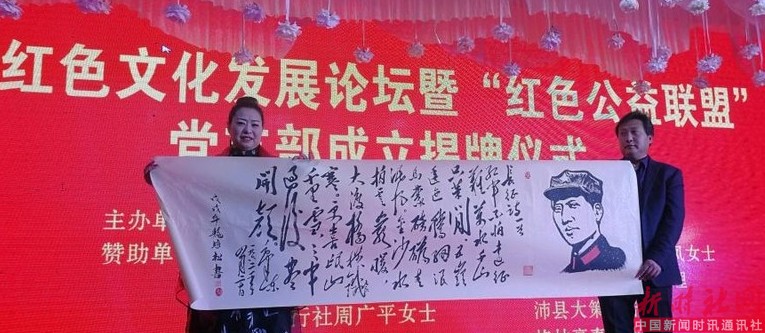 红色文化发展论坛暨“红色公益联盟”
党支部成立揭牌仪式
主办单
赞助单
女士
长征诗一首
红军不怕远征
难万水千山
只等闲五岭
逶迤腾细浪
乌蒙磅礴走
泥丸金沙水
拍云崖暖
大渡桥横铁
索寒更喜岷山
千里雪三军
过后尽
开颜
行社周广平女士
沛县大
中国新闻时讯通讯社